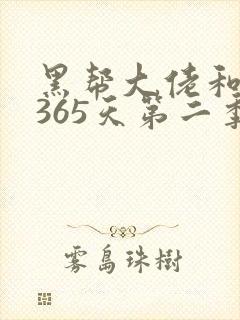 黑帮大佬和
365天第二季
雾島珠樹